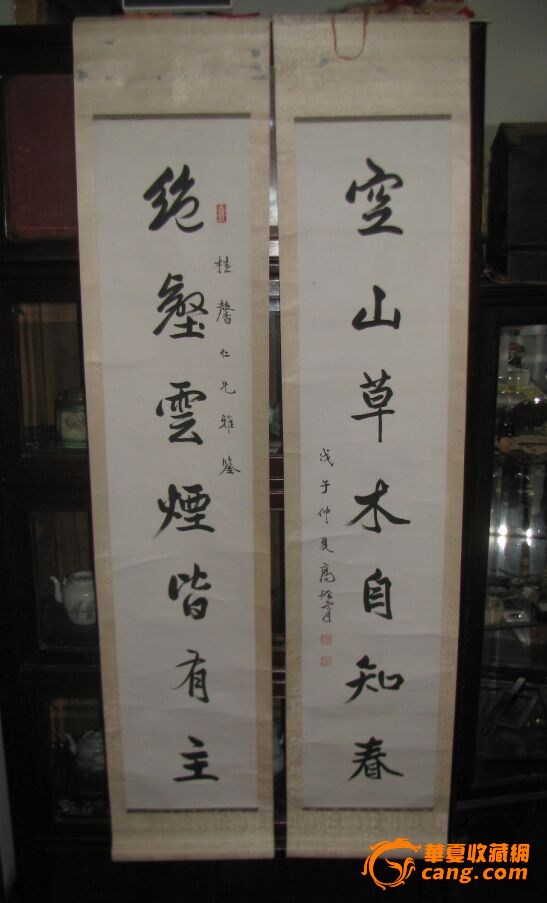 空山草木自知春
戊子仲夏高振霄
桂馨仁兄雅鑒
絶壑雲煙皆有主
華夏收藏網
cang.com